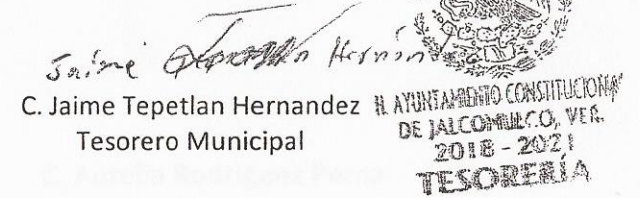 Jaime Tepetlan Hernan
C. Jaime Tepetlan Hernandez
Tesorero Municipal
H. AYUNTAMIENTO CONSTITUCIONAL
DE JALCOMULCO, VER.
2018 - 2021
TESORERÍA